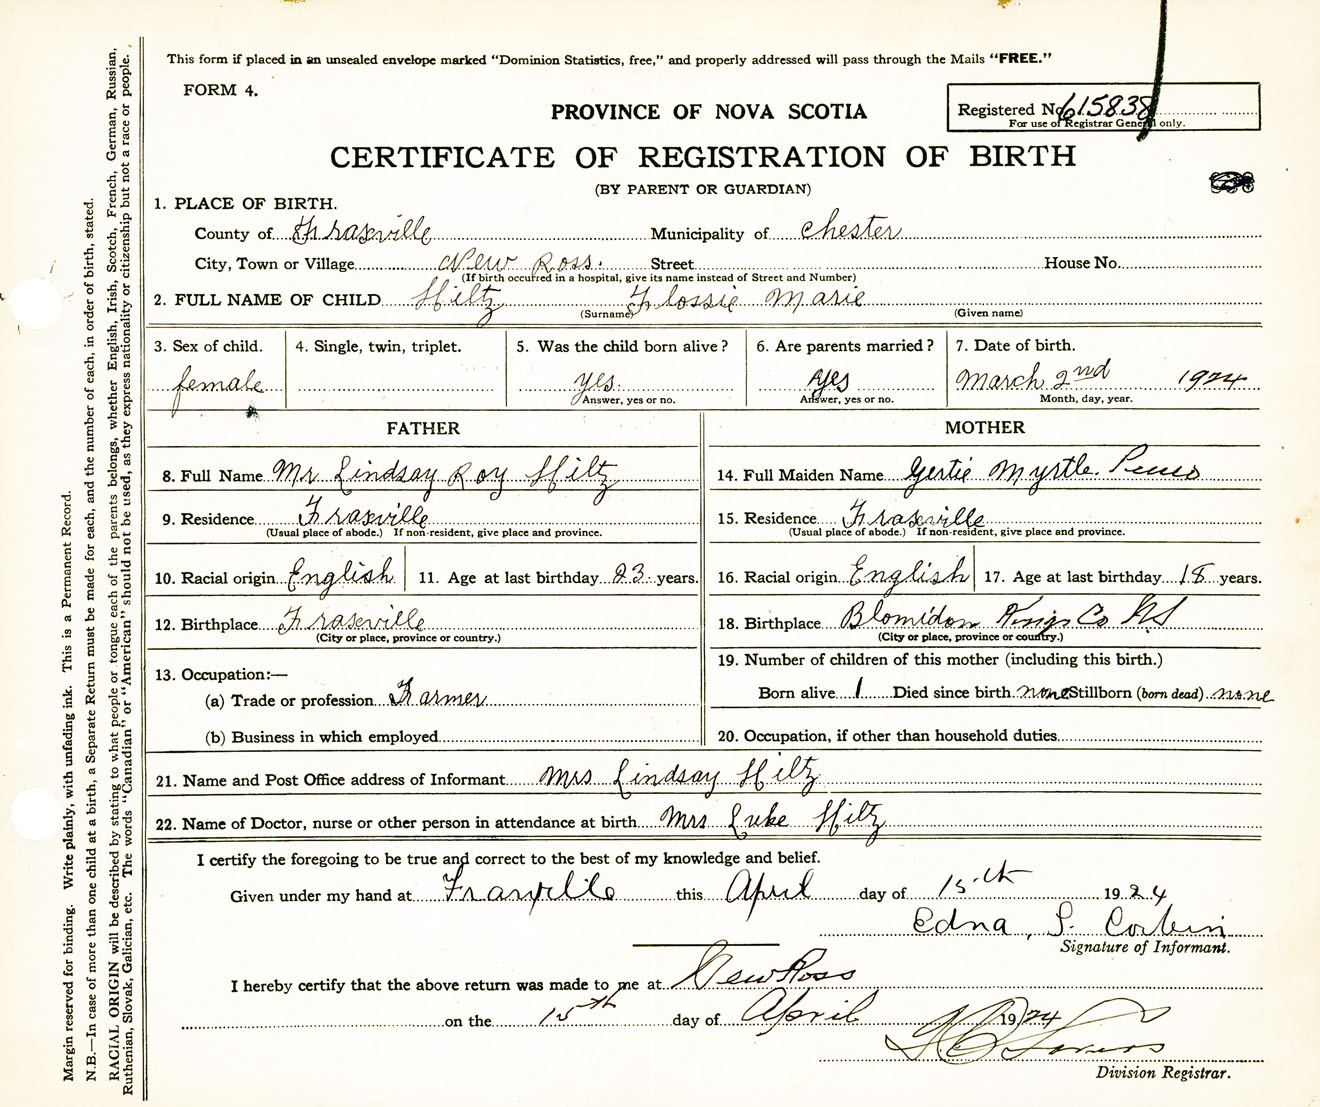 This form if placed in an unsealed envelope marked "Dominion Statistics, free," and properly addressed will pass through the Mails "FREE."
FORM 4.
PROVINCE OF NOVA SCOTIA
Registered No. 615838
For use of Registrar General only.
CERTIFICATE OF REGISTRATION OF BIRTH
(BY PARENT OR GUARDIAN)
1. PLACE OF BIRTH.
County of Fraxville Municipality of Chester
City, Town or Village New Ross. Street House No.
(If birth occurred in a hospital, give its name instead of Street and Number)
2. FULL NAME OF CHILD Hiltz Flossie Marie
(Surname) (Given name)
3. Sex of child. 4. Single, twin, triplet. 5. Was the child born alive? 6. Are parents married? 7. Date of birth.
female yes. yes March 2nd 1924
Answer, yes or no. Answer, yes or no. Month, day, year.
FATHER MOTHER
8. Full Name Mr Lindsay Roy Hiltz 14. Full Maiden Name Gertie Myrtle
9. Residence Fraxville 15. Residence Fraxville
(Usual place of abode.) If non-resident, give place and province. (Usual place of abode.) If non-resident, give place and province.
10. Racial origin English 11. Age at last birthday 23 years. 16. Racial origin English 17. Age at last birthday 18 years.
12. Birthplace Fraxville 18. Birthplace Blomidon Kings Co NS
(City or place, province or country.) (City or place, province or country.)
13. Occupation:— 19. Number of children of this mother (including this birth.)
(a) Trade or profession Farmer Born alive 1 Died since birth none Stillborn (born dead) none
(b) Business in which employed 20. Occupation, if other than household duties
21. Name and Post Office address of Informant Mrs Lindsay Hiltz
22. Name of Doctor, nurse or other person in attendance at birth Mrs Luke Hiltz
I certify the foregoing to be true and correct to the best of my knowledge and belief.
Given under my hand at Fraxville this April day of 15th 1924
Edna, S. Corbin
Signature of Informant.
I hereby certify that the above return was made to me at New Ross
on the 15th day of April 1924
Division Registrar.
Margin reserved for binding. Write plainly, with unfading ink. This is a Permanent Record.
N.B.—In case of more than one child at a birth, a Separate Return must be made for each, and the number of each, in order of birth, stated.
RACIAL ORIGIN will be described by stating to what people or tongue each of the parents belongs, whether English, Irish, Scotch, French, German, Russian,
Ruthenian, Slovak, Galician, etc. The words "Canadian" or "American" should not be used, as they express nationality or citizenship but not a race or people.